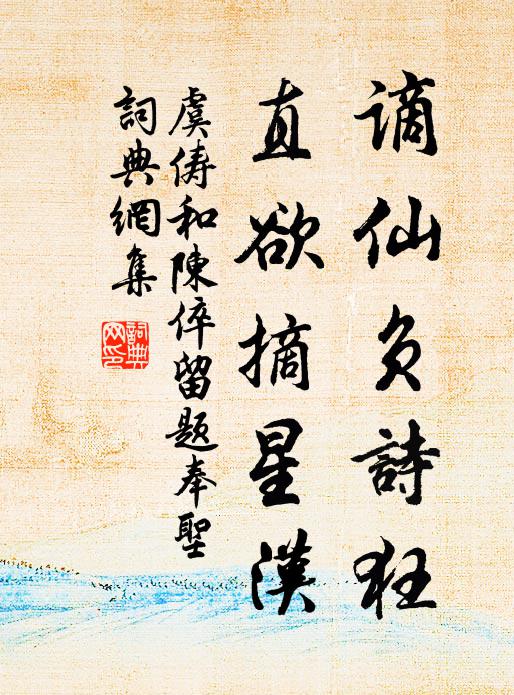 謫仙負詩狂
直欲摘星漢
虞儔和陳倅留題奉聖
詞典網集
詞典
網印